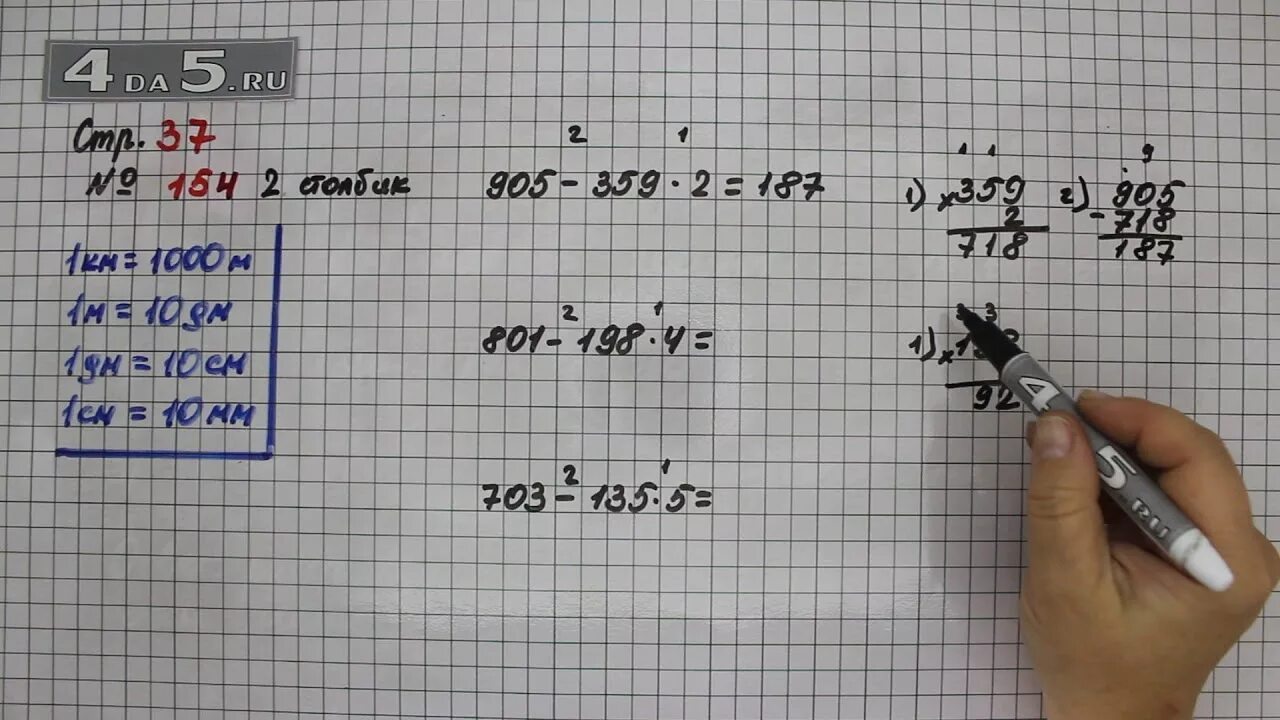 4DA5.RU
Стр. 37
№ 154 2 столбик
1км = 1000м
1м = 10дм
1дм = 10см
1см = 10мм
2 1
905 - 359 · 2 = 187
2 1
801 - 198 · 4 =
2 1
703 - 135 · 5 =
1 1
1) × 359
2
718
9
2) - 905
718
187
3 3
1) × 198
92
45.RU